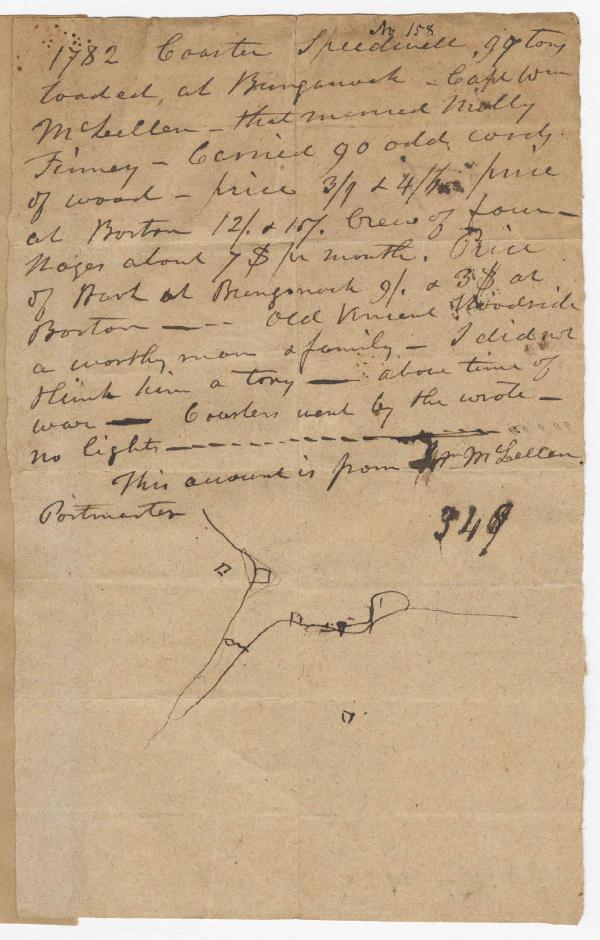 No 158
1782 Coaster Speedwell, 90 tons
loaded, at Bunganock - Capt Wm
McLellen - that married Molly
Finney - Carried 90 odd cords
of wood - price 3/9 & 4/ price
at Boston 12/. & 15/. Crew of four -
Wages about 7$ pr month. Price
of Bark at Bunganock 9/. & 3$ at
Boston - - - Old Vincent Woodside
a worthy man & family - I did not
think him a tory - above time of
war - Coasters went by the wrote -
no lights - - - - - -
This account is from Wm McLellen
Postmaster
348